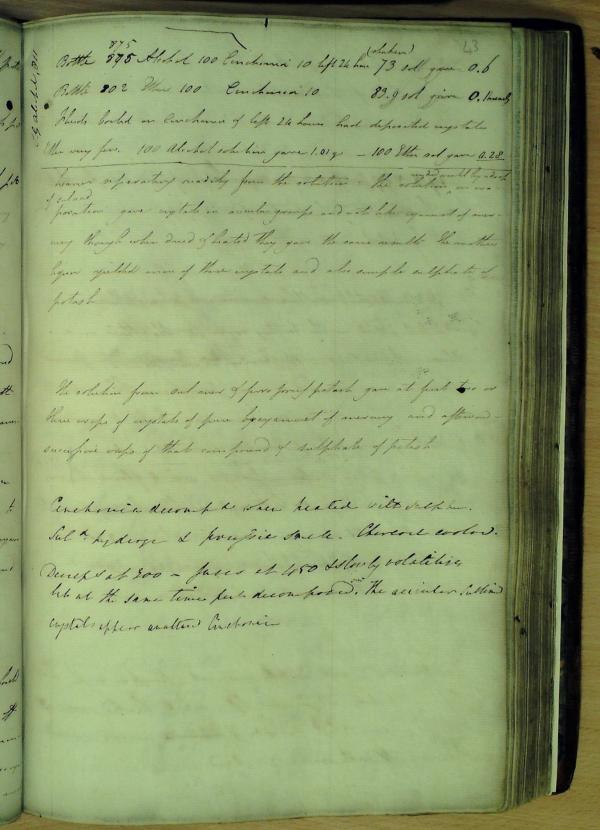 43
875 (solution)
Bottle 895 Alcohol 100 Cinchonia 10 left 24 hours 73 sol gave 0.6
Bottle 802 Ether 100 Cinchonia 10 83.9 sol give 0.
Fluids boiled on Cinchonia & left 24 hours had deposited crystals
Ether very few. 100 Alcohol solution gave 1.01 g — 100 Ether sol gave 0.28
separating readily from the solution. The solution on eva-
poration gave crystals in acicular groups and not like cyanuret of mer-
cury though when dried & heated they gave the same results. The mother
liquor yielded more of these crystals and also sulphate of
potash
The solution from and pruss of potash gave at first two or
three crops of crystals of pure cyanuret of mercury and afterwards
successive crops of that compound & sulphate of potash
Cinchonia decomp d when heated with sulphur.
Sul d hydrogen & prussic smell. Charcoal
at 300 — fuses at 450 & slowly volatilises
but at the same time part decomposed. The acicular sublimed
crystals appear unaltered Cinchonia